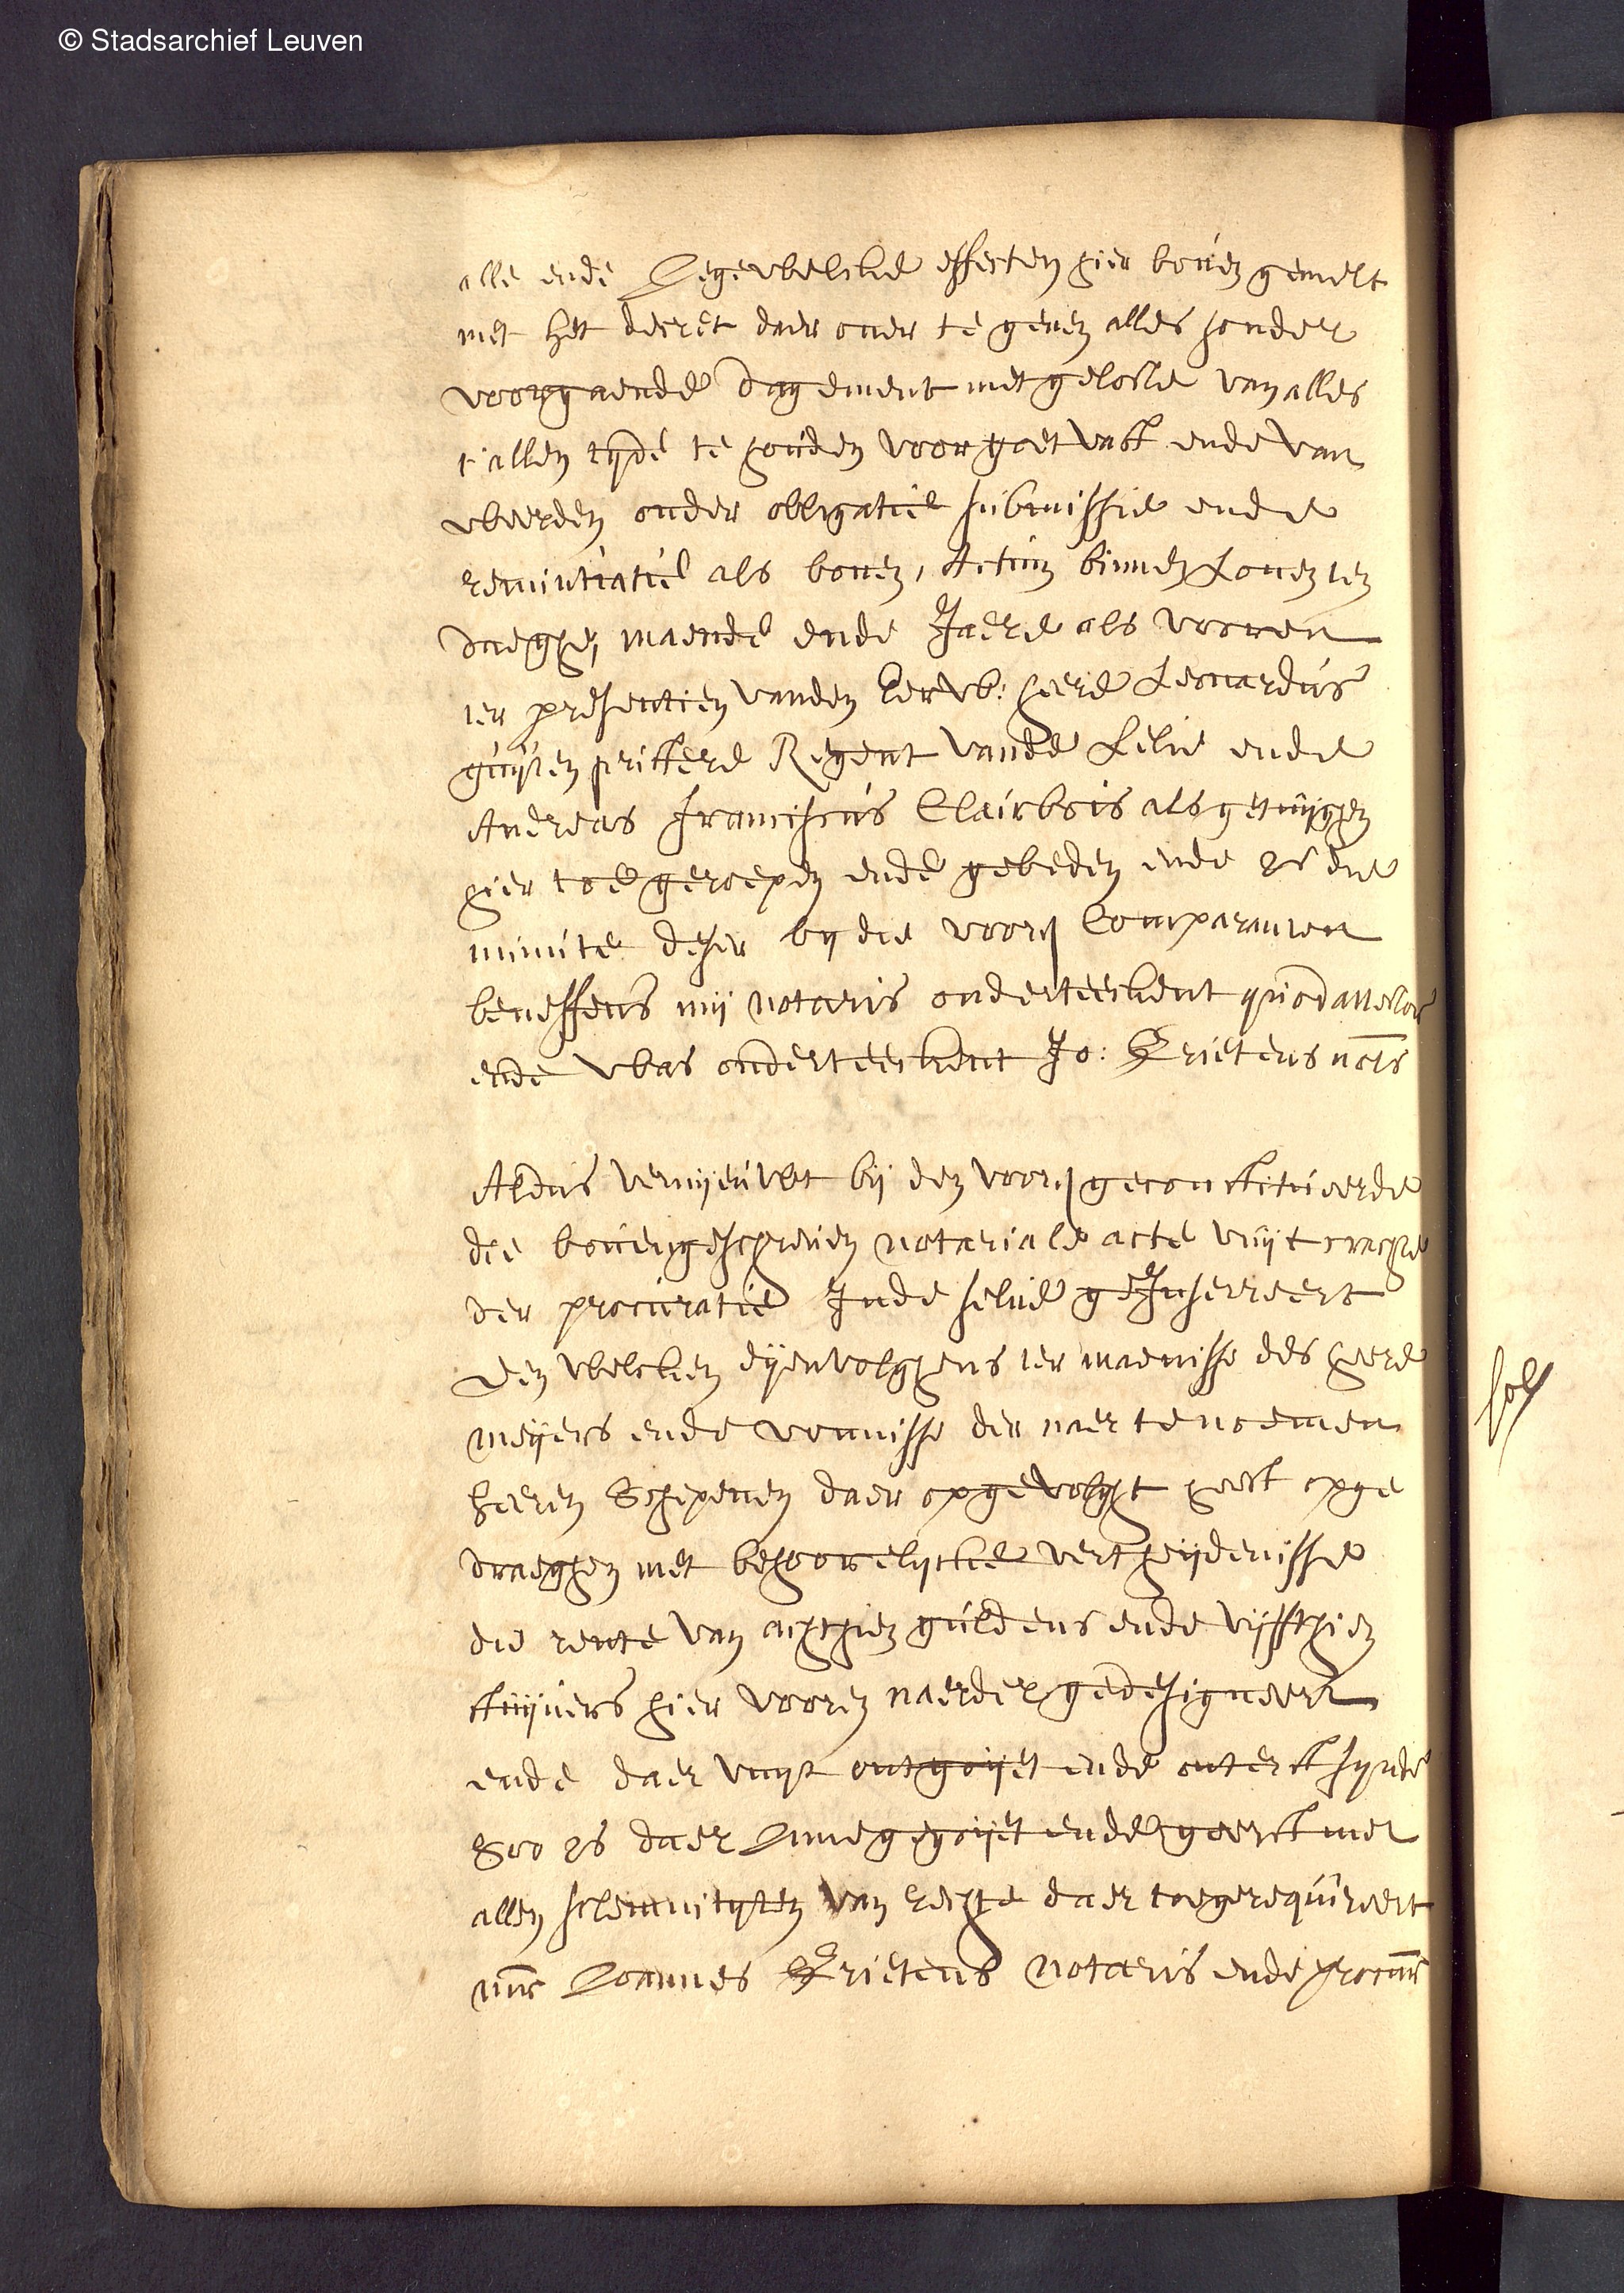 © Stadsarchief Leuven
alle ende Iegewelcke effecten hier boven gemelt
met het decret daer over te geven alles sonder
voorgaende dagement met gelofte van alles
t'allen tyde te houden voor goet vast ende van
weerden onder obligatie submissie ende
renuntiatie als boven, Actum binnen Loven ten
daeghe, maende ende Jaere als voorens
ter presentien vanden Eerw: heere Leonardus
priestere Regent vande Lelie ende
Andreas Franciscus Clairbois als getuyghen
hier toe geroepen ende gebeden ende is die
minute deser by die voors Comparanten
beneffens my notaris onderteeckent quod attestor
ende was onderteeckent Jo: Krietens nots
Aldus vernyeuwt by den voors geconstitueerde
die bovengeschreven notariale acte vuyt crachte
der procuratie Inde selve geInsereert
den welcken dyenvolghens ter maenisse des heere
meyers ende vonnisse der naer te noemen
heeren Schepenen daer op gevolght heeft opge
draeghen met behoorelycke verthydenisse
die rente van achthien guldens ende vyffthien
stuyvers hier vooren naerder gedesigneert
ende daer vuyt ontgoyt ende onterft synde
Soo is daer Inne gegoyt ende geerft met
allen solemnityten van rechte daer toe gerequireert
mr Joannes Krietens notaris ende procur
sol